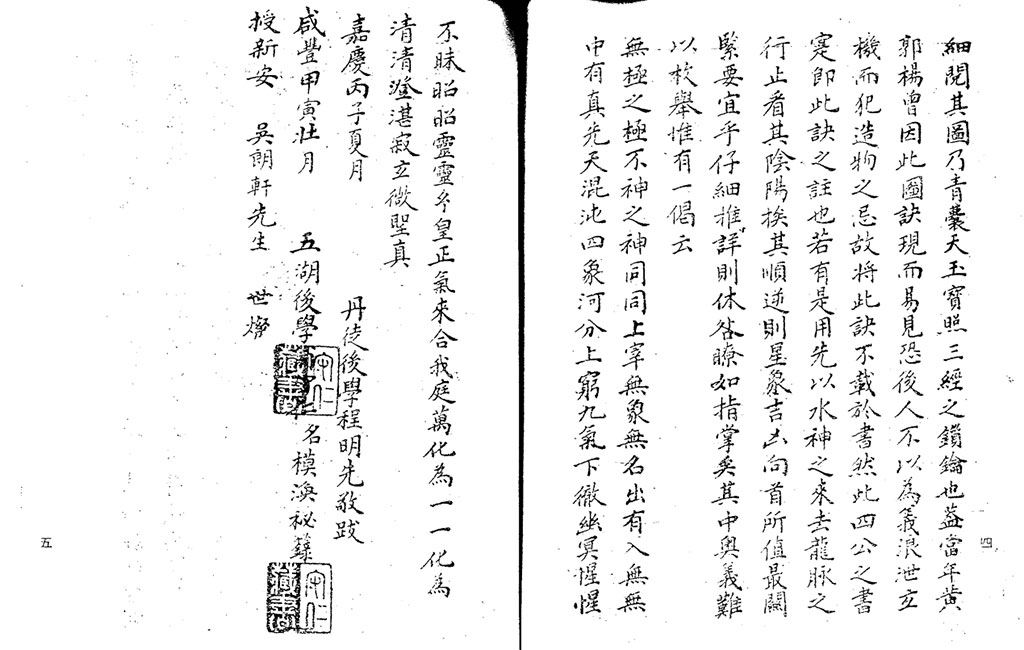 細閱其圖乃青囊天玉寶照三經之鎖鑰也蓋當年黃
郭楊曾因此圖訣現而易見恐後人不以為義浪泄立
機而犯造物之忌故將此訣不載於書然此四公之書
寔即此訣之註也若有是用先以水神之來去龍脉之
行止看其陰陽挨其順逆則星象吉凶向首所值最關
緊要宜乎仔細推詳則休咎瞭如指掌矣其中奧義難
以枚舉惟有一偈云
無極之極不神之神同同上宰無象無名出有入無無
中有真先天混沌四象河分上窮九氣下徹幽冥惺惺
四
不昧昭昭靈靈兮皇正氣來合我庭萬化為一一化為
清清澄湛寂立微聖真
嘉慶丙子夏月 丹徒後學程明先敬跋
咸豐甲寅壯月 五湖後學 名模渙秘籙
授新安 吳朗軒先生 世
守仁藏書
守仁藏書
五